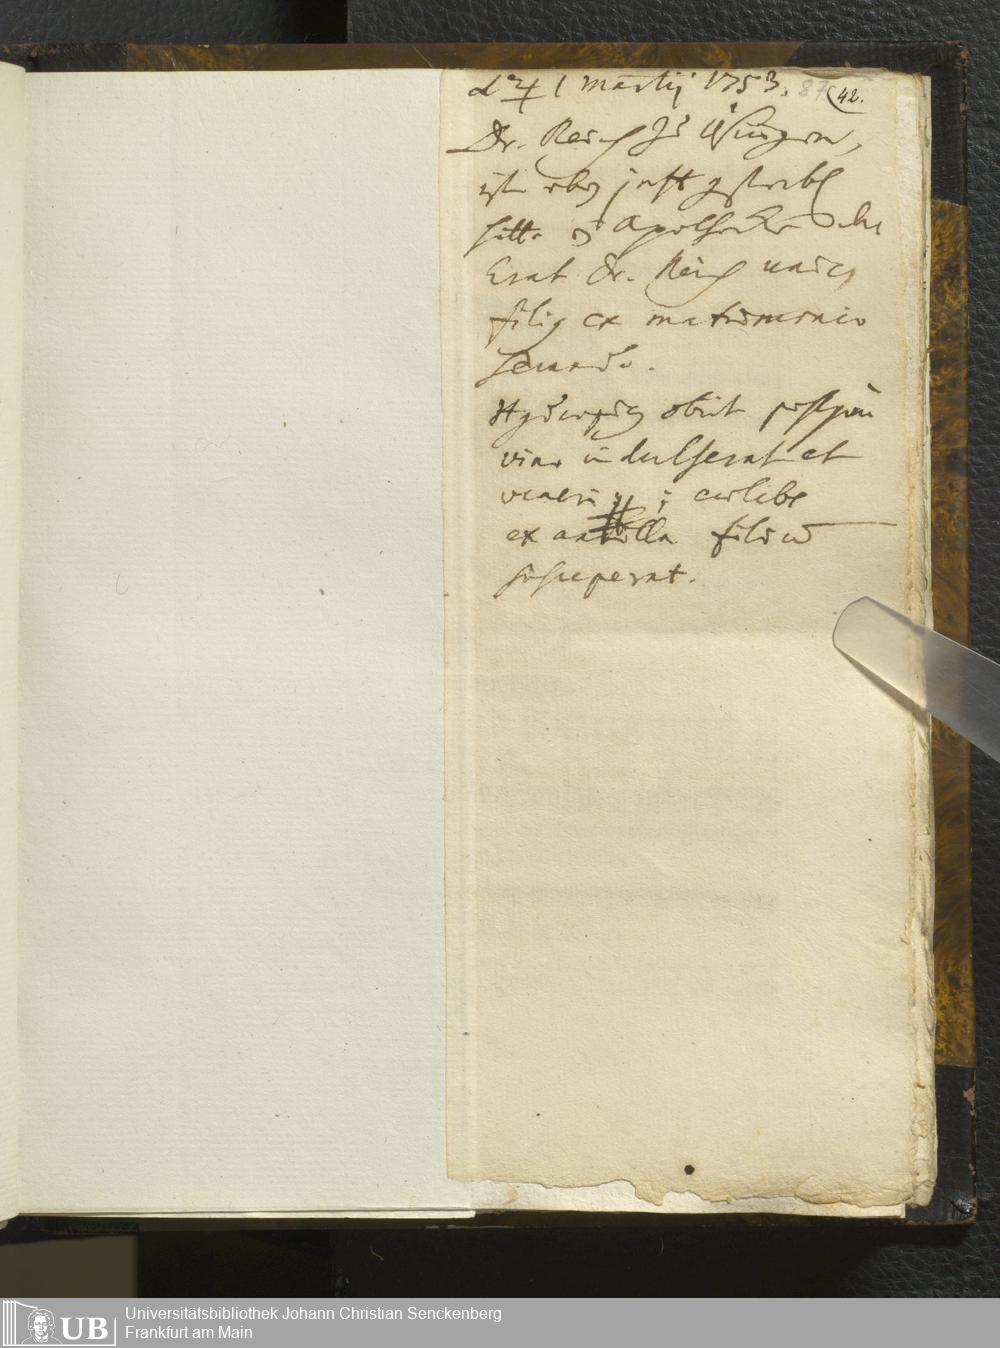 d ♃ 1 Martij 1753. 87 (42.
Dr. Reich zu Usingen,
ist eben jetzt gestorb
hatte d Apothecke
Erat Dr. Reich unicus
filius ex matrimonio
secundo.
Hydropicus obiit postquam
vino indulserat et
veneri ; coelebs
ex ancilla filium
susceperat.
UB
Universitätsbibliothek Johann Christian Senckenberg
Frankfurt am Main